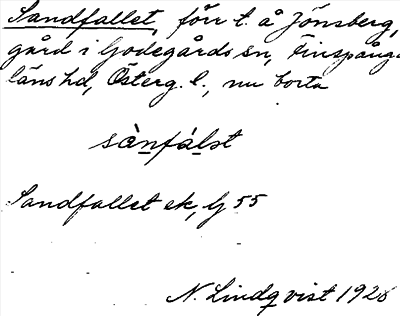 Sandfallet, förr t. å Jönsberg,
gård i Godegårds sn, Finspånga
läns hd, Österg. l., nu borta
sànfálst
Sandfallet ek, G 55
N. Lindqvist 1926